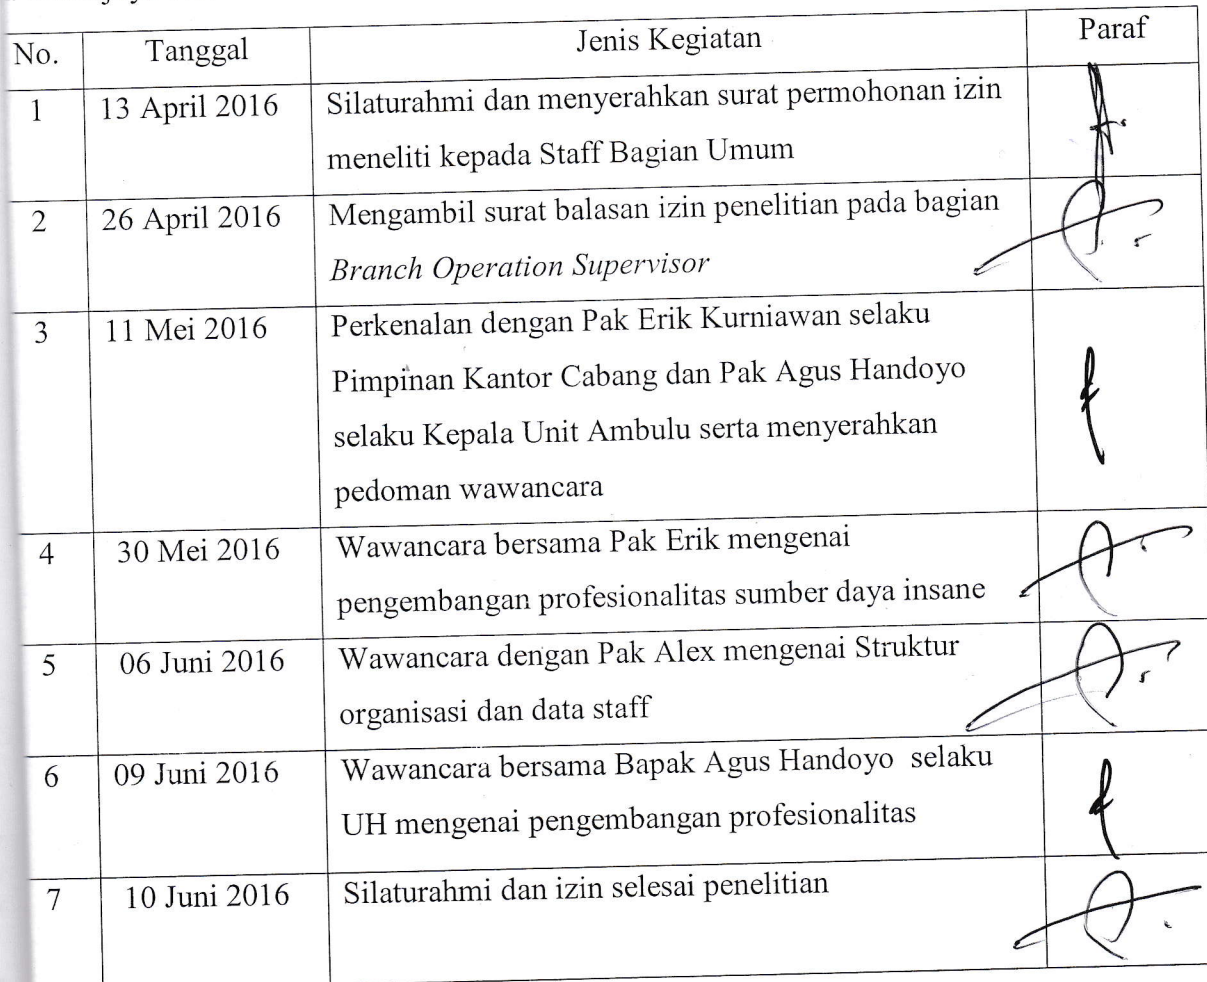 No. Tanggal Jenis Kegiatan Paraf
1 13 April 2016 Silaturahmi dan menyerahkan surat permohonan izin
meneliti kepada Staff Bagian Umum
2 26 April 2016 Mengambil surat balasan izin penelitian pada bagian
Branch Operation Supervisor
3 11 Mei 2016 Perkenalan dengan Pak Erik Kurniawan selaku
Pimpinan Kantor Cabang dan Pak Agus Handoyo
selaku Kepala Unit Ambulu serta menyerahkan
pedoman wawancara
4 30 Mei 2016 Wawancara bersama Pak Erik mengenai
pengembangan profesionalitas sumber daya insane
5 06 Juni 2016 Wawancara dengan Pak Alex mengenai Struktur
organisasi dan data staff
6 09 Juni 2016 Wawancara bersama Bapak Agus Handoyo selaku
UH mengenai pengembangan profesionalitas
7 10 Juni 2016 Silaturahmi dan izin selesai penelitian